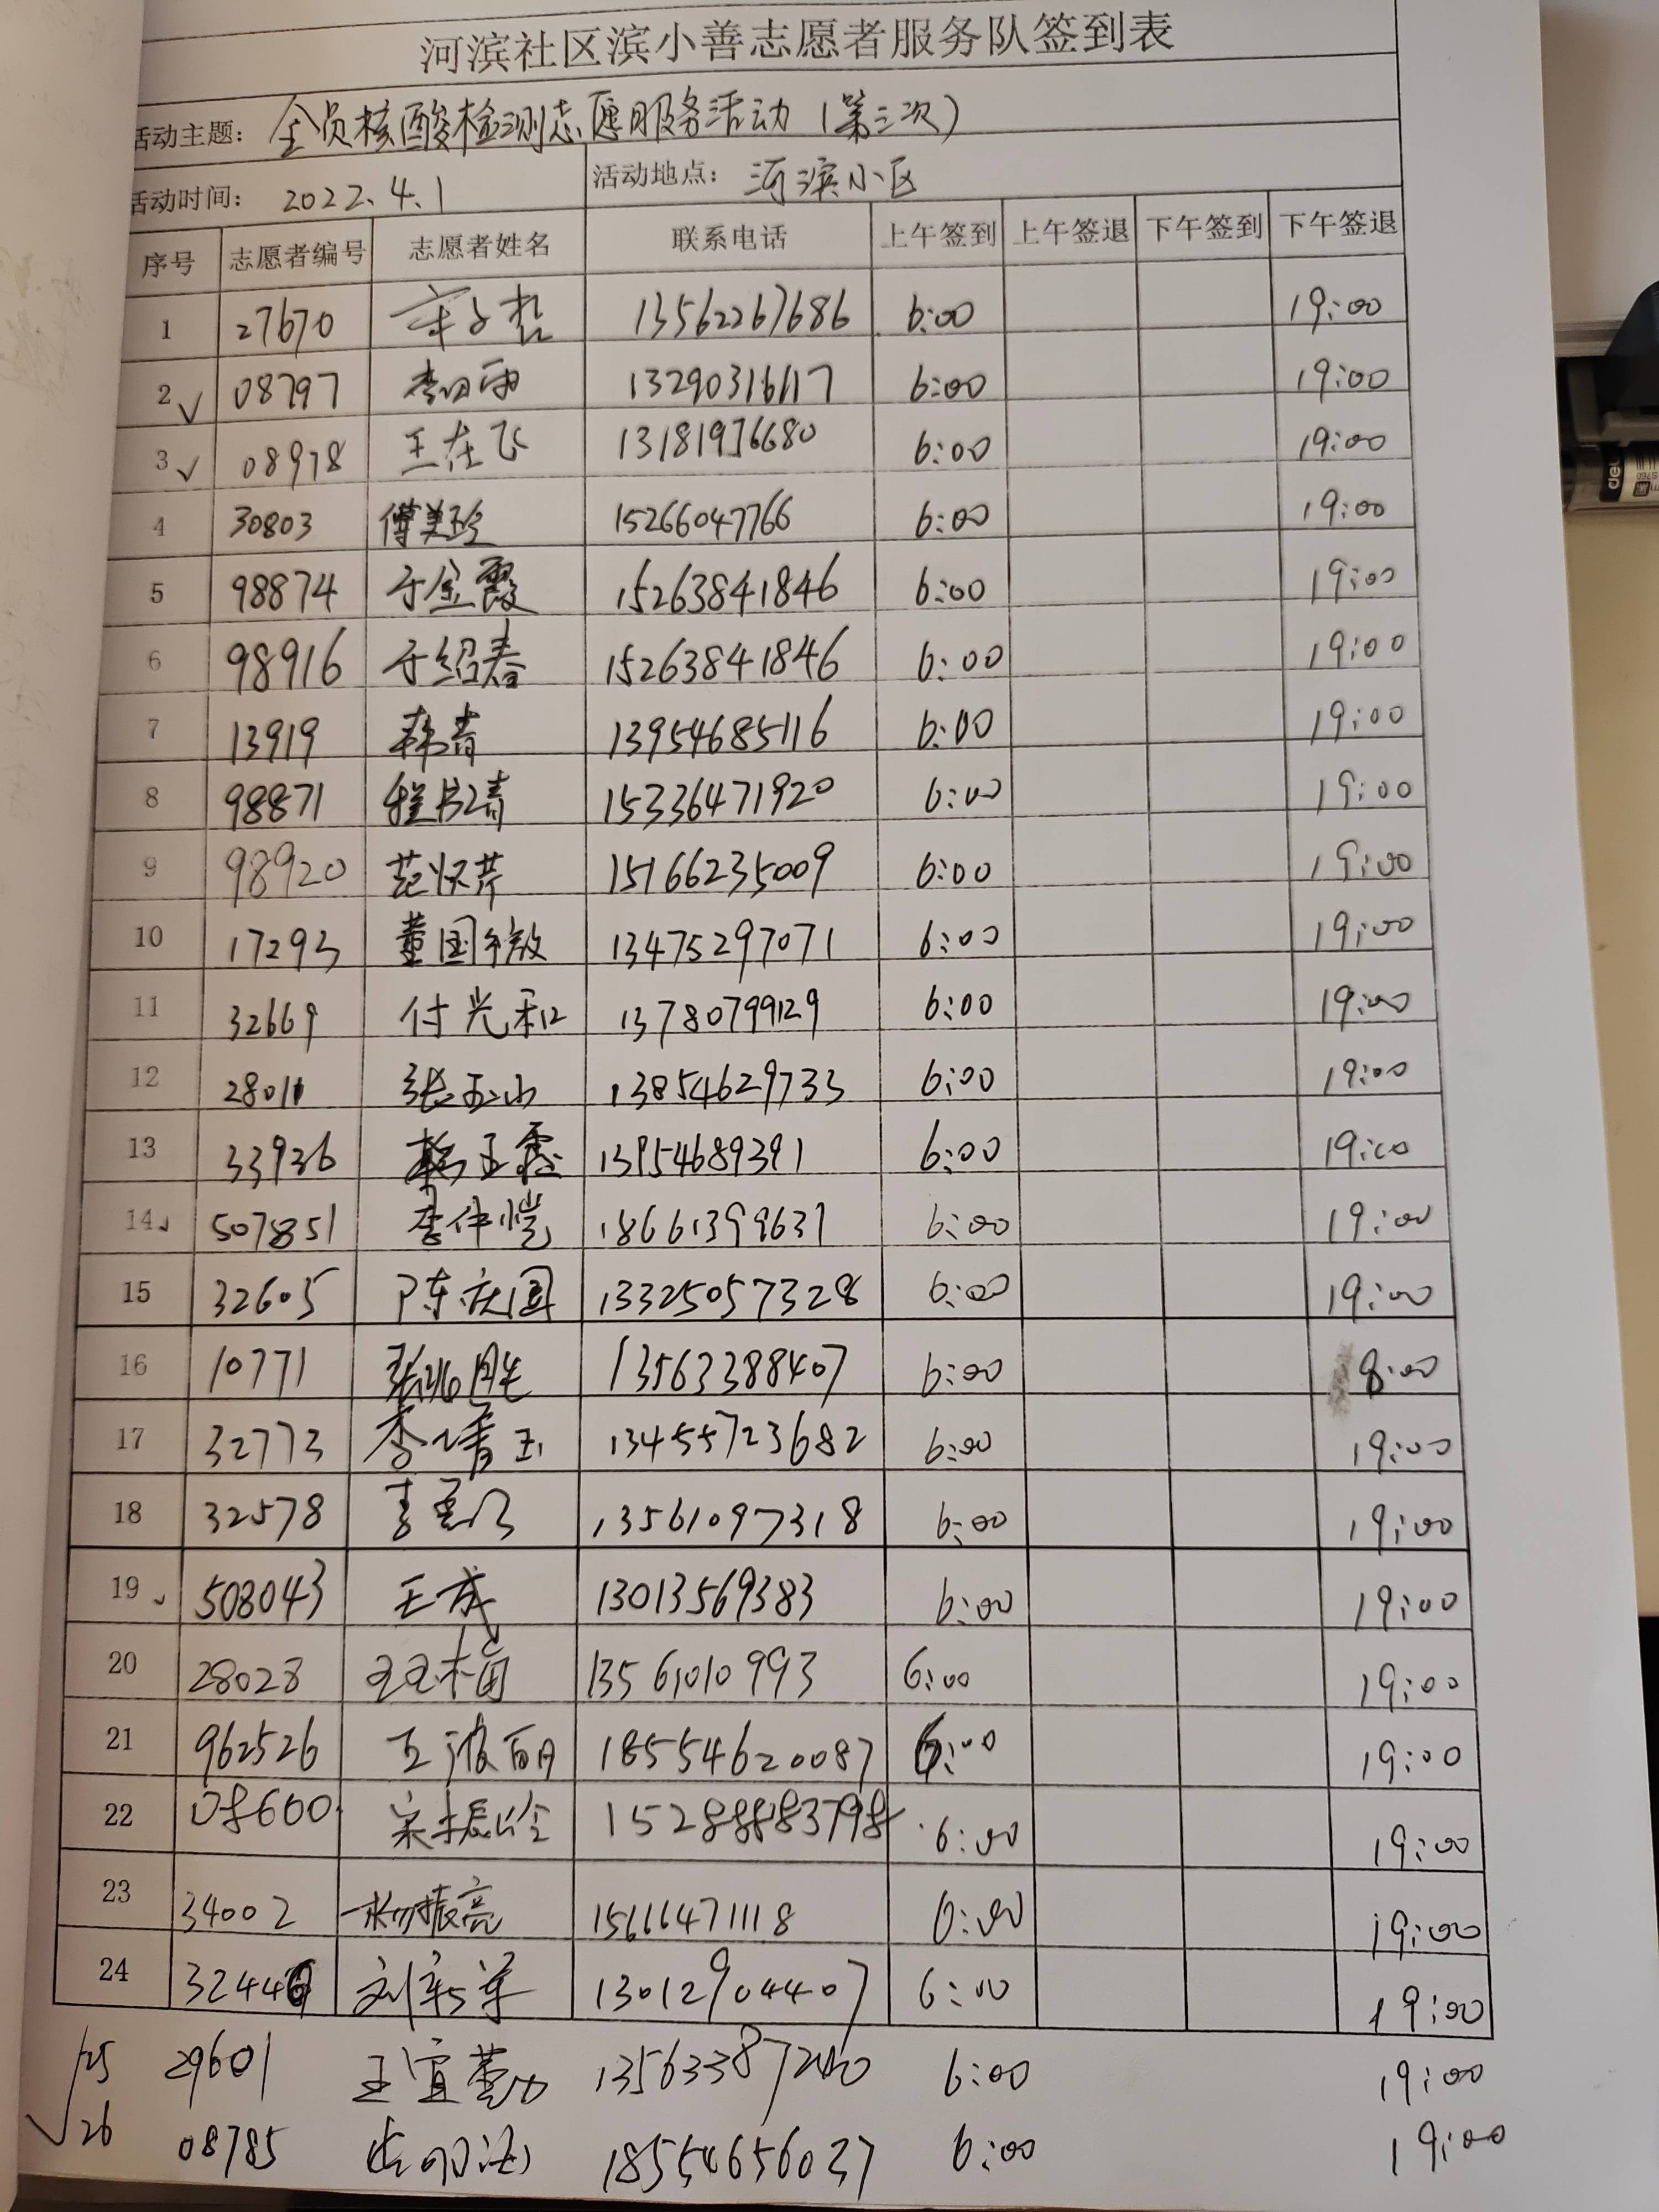 河滨社区滨小善志愿者服务队签到表
活动主题: 全员核酸检测志愿服务活动(第三次)
活动时间: 2022.4.1 活动地点: 河滨小区
序号 志愿者编号 志愿者姓名 联系电话 上午签到 上午签退 下午签到 下午签退
1 27670 13562267686 6:00 19:00
2 08797 13290316117 6:00 19:00
3 08978 王在飞 13181976680 6:00 19:00
4 30803 傅美珍 15266047766 6:00 19:00
5 98874 于金霞 15263841846 6:00 19:00
6 98916 于绍春 15263841846 6:00 19:00
7 13919 韩青 13954685116 6:00 19:00
8 98871 程书清 15336471920 6:00 19:00
9 98920 范怀芹 15166235009 6:00 19:00
10 17293 董国放 13475297071 6:00 19:00
11 32669 付光和 13780799129 6:00 19:00
12 28011 张玉山 13854629733 6:00 19:00
13 33936 13954689391 6:00 19:00
14 507851 李伟恺 18661399631 6:00 19:00
15 32605 陈庆国 13325057328 6:00 19:00
16 10771 13563388407 6:00 8:00
17 32773 李清玉 13455723682 6:00 19:00
18 32578 13561097318 6:00 19:00
19 508043 王成 13013569383 6:00 19:00
20 28028 王玉梅 13561010993 6:00 19:00
21 962526 王波 18554620087 6:00 19:00
22 08600 宋振 15288883798 6:00 19:00
23 34002 杨振亮 15666471118 6:00 19:00
24 刘军 13012904407 6:00 19:00
25 29601 王宜 13563387240 6:00 19:00
26 08785 18554656037 6:00 19:00
deli